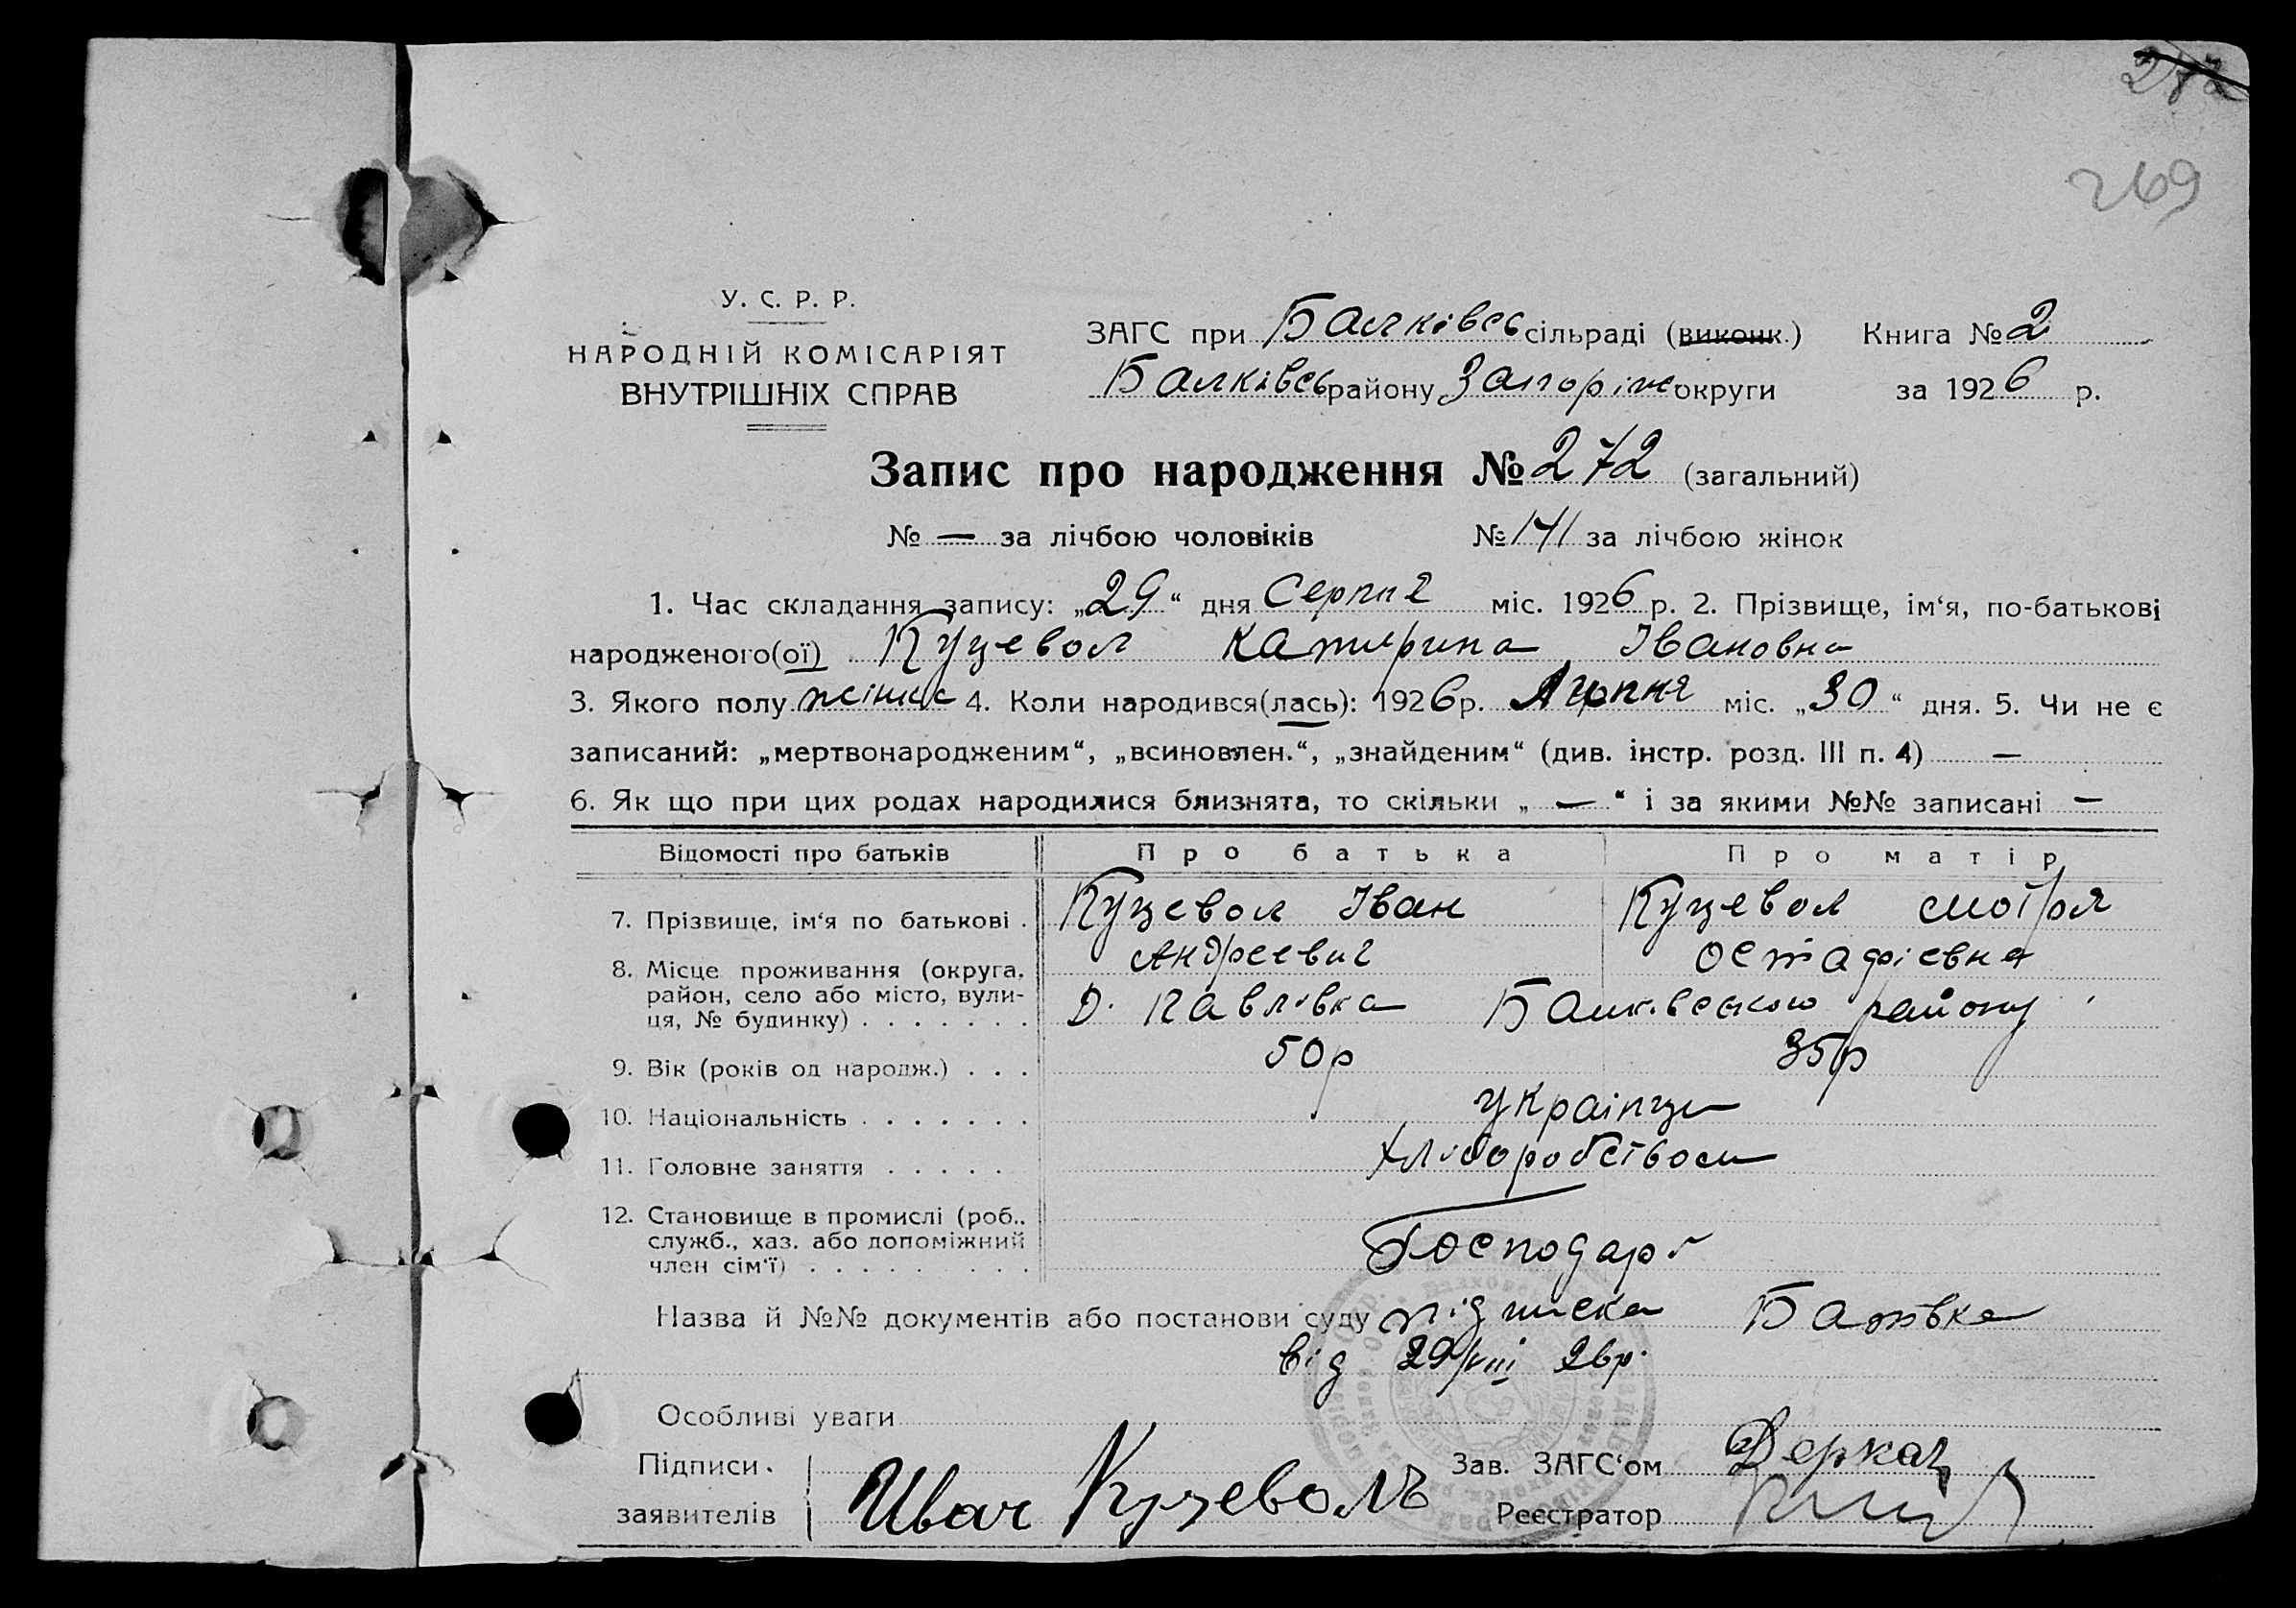 272
269
У. С. Р. Р.
НАРОДНІЙ КОМІСАРІЯТ
ВНУТРІШНІХ СПРАВ
ЗАГС при Балківсь сільраді (виконк.) Книга № 2
Балківсь району Запоріж округи за 1926 р.
Запис про народження № 272 (загальний)
№ — за лічбою чоловіків № 141 за лічбою жінок
1. Час складання запису: „29“ дня Серпня міс. 1926 р. 2. Прізвище, ім‘я, по-батькові
народженого(ої) Куцевол Катирина Івановна
3. Якого полу жінка 4. Коли народився(лась): 1926 р. Липня міс. „30“ дня. 5. Чи не є
записаний: „мертвонародженим“, „всиновлен.“, „знайденим“ (див. інстр. розд. III п. 4) —
6. Як що при цих родах народилися близнята, то скільки „ — “ і за якими №№ записані —
Відомості про батьків Про батька Про матір
7. Прізвище, ім‘я по батькові . Куцевол Іван Куцевол Мотря
Андреевич Остафіевна
8. Місце проживання (округа, район, село або місто, вули-
ця, № будинку) . . . . . . . Д. Павлівка Балківського району
9. Вік (років од народж.) . . . 50р 35р
10. Національність . . . . . . . українци
11. Головне заняття . . . . . хліборобством
12. Становище в промислі (роб..
служб., хаз. або допоміжний
член сім‘ї) . . . . . . . . Господарі
Назва й №№ документів або постанови суду підписка Батька
від 29/VIII 26р.
Особливі уваги
Підписи Зав. ЗАГС‘ом Деркач
заявителів Иван Куцеволъ Реєстратор